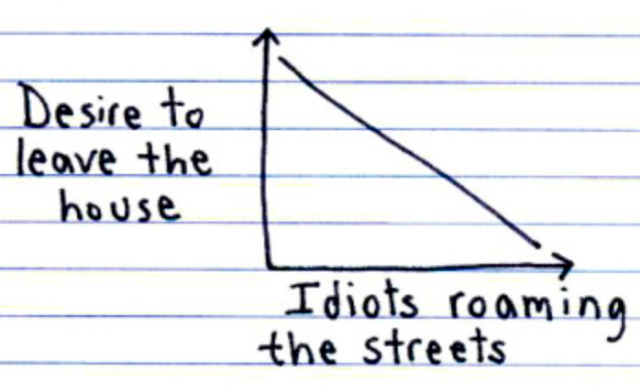 Desire to
leave the
house
Idiots roaming
the streets